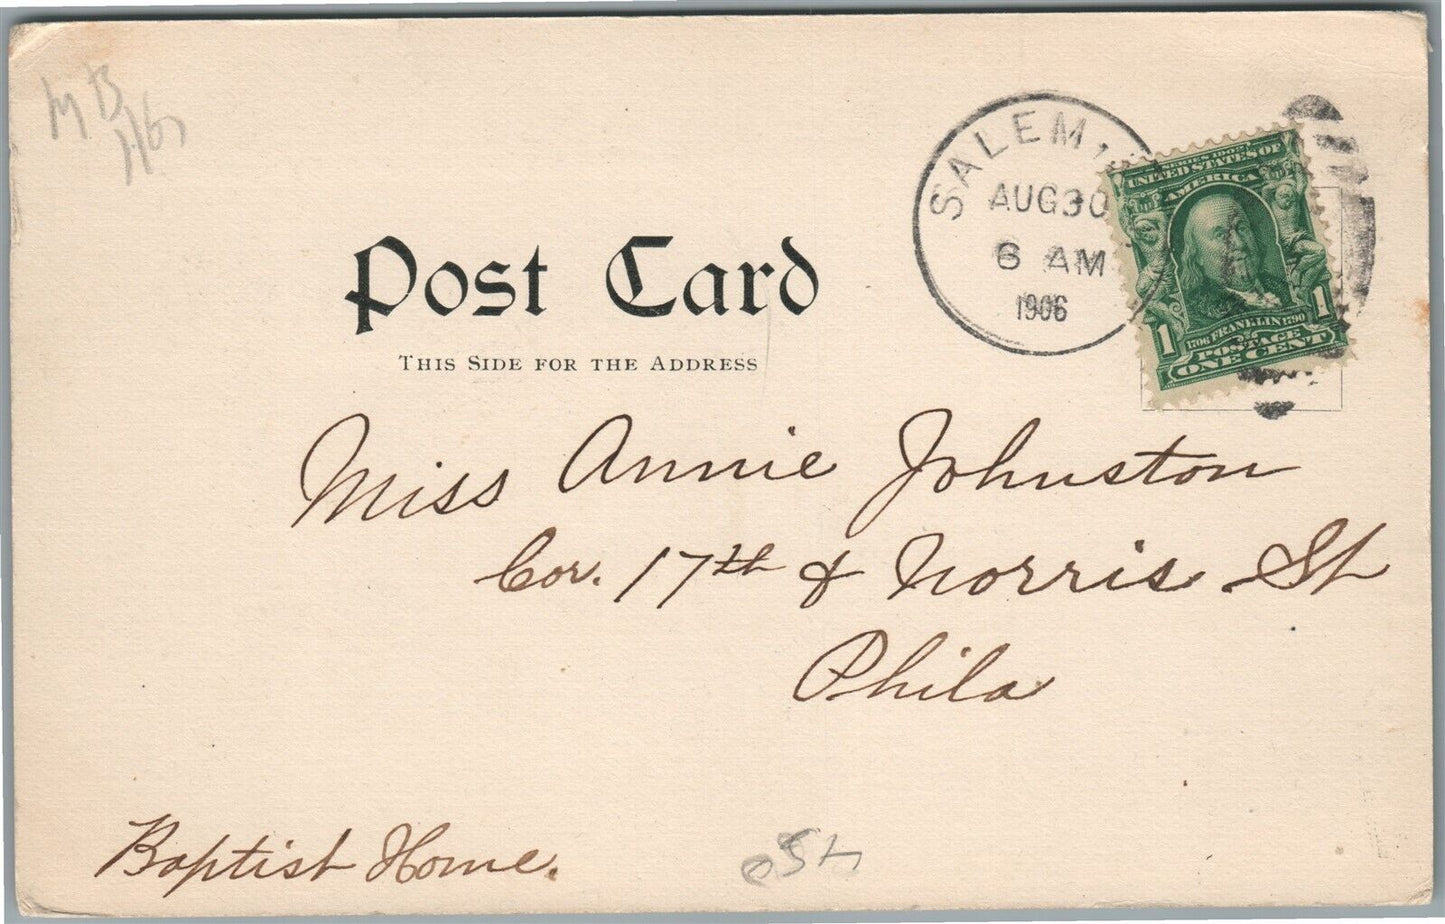 MB
SALEM
AUG 30
6 AM
1906
SERIES 1902
UNITED STATES OF
AMERICA
1 1
1706 FRANKLIN 1790
POSTAGE
ONE CENT
Post Card
THIS SIDE FOR THE ADDRESS
Miss Annie Johnston
Cor. 17th & Norris St
Phila
Baptist Home.